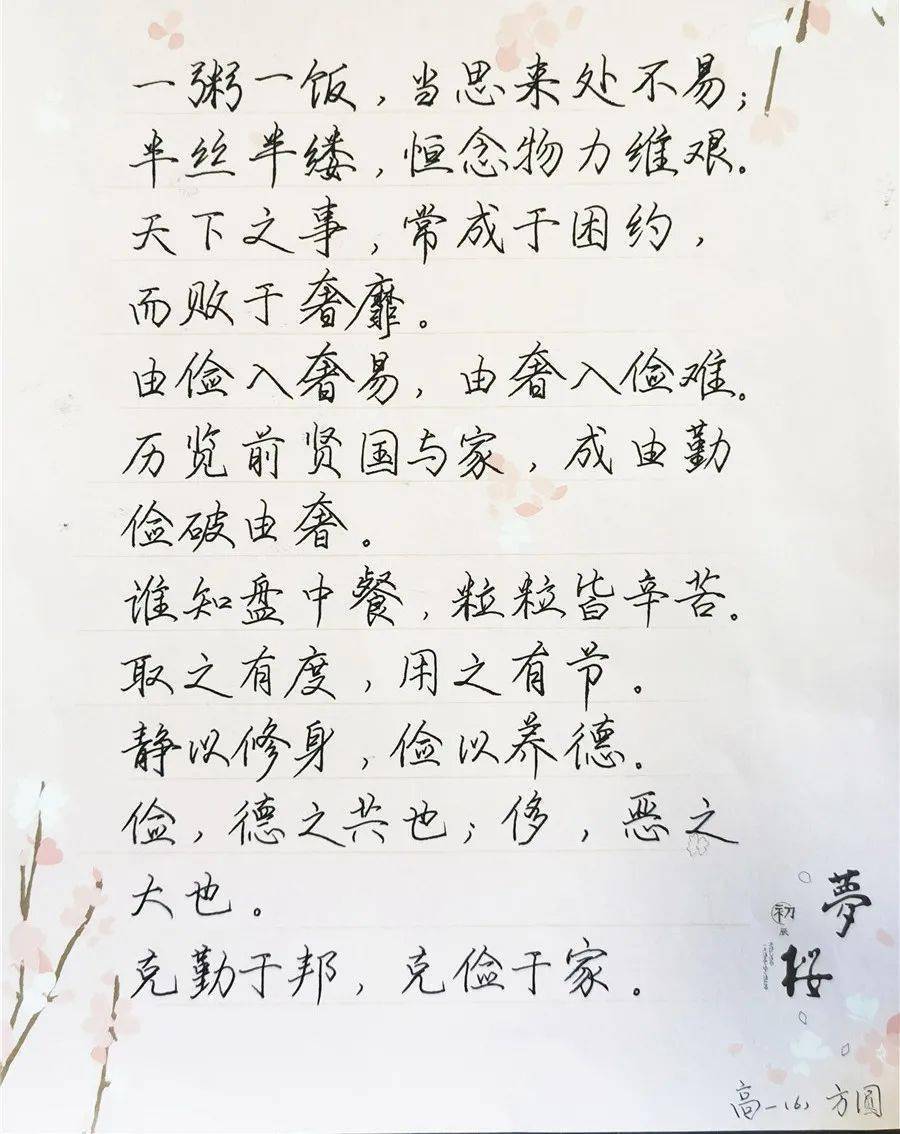 一粥一饭，当思来处不易；
半丝半缕，恒念物力维艰。
天下之事，常成于困约，
而败于奢靡。
由俭入奢易，由奢入俭难。
历览前贤国与家，成由勤
俭破由奢。
谁知盘中餐，粒粒皆辛苦。
取之有度，用之有节。
静以修身，俭以养德。
俭，德之共也；侈，恶之
大也。
克勤于邦，克俭于家。
夢
櫻
初
高一(6) 方圆